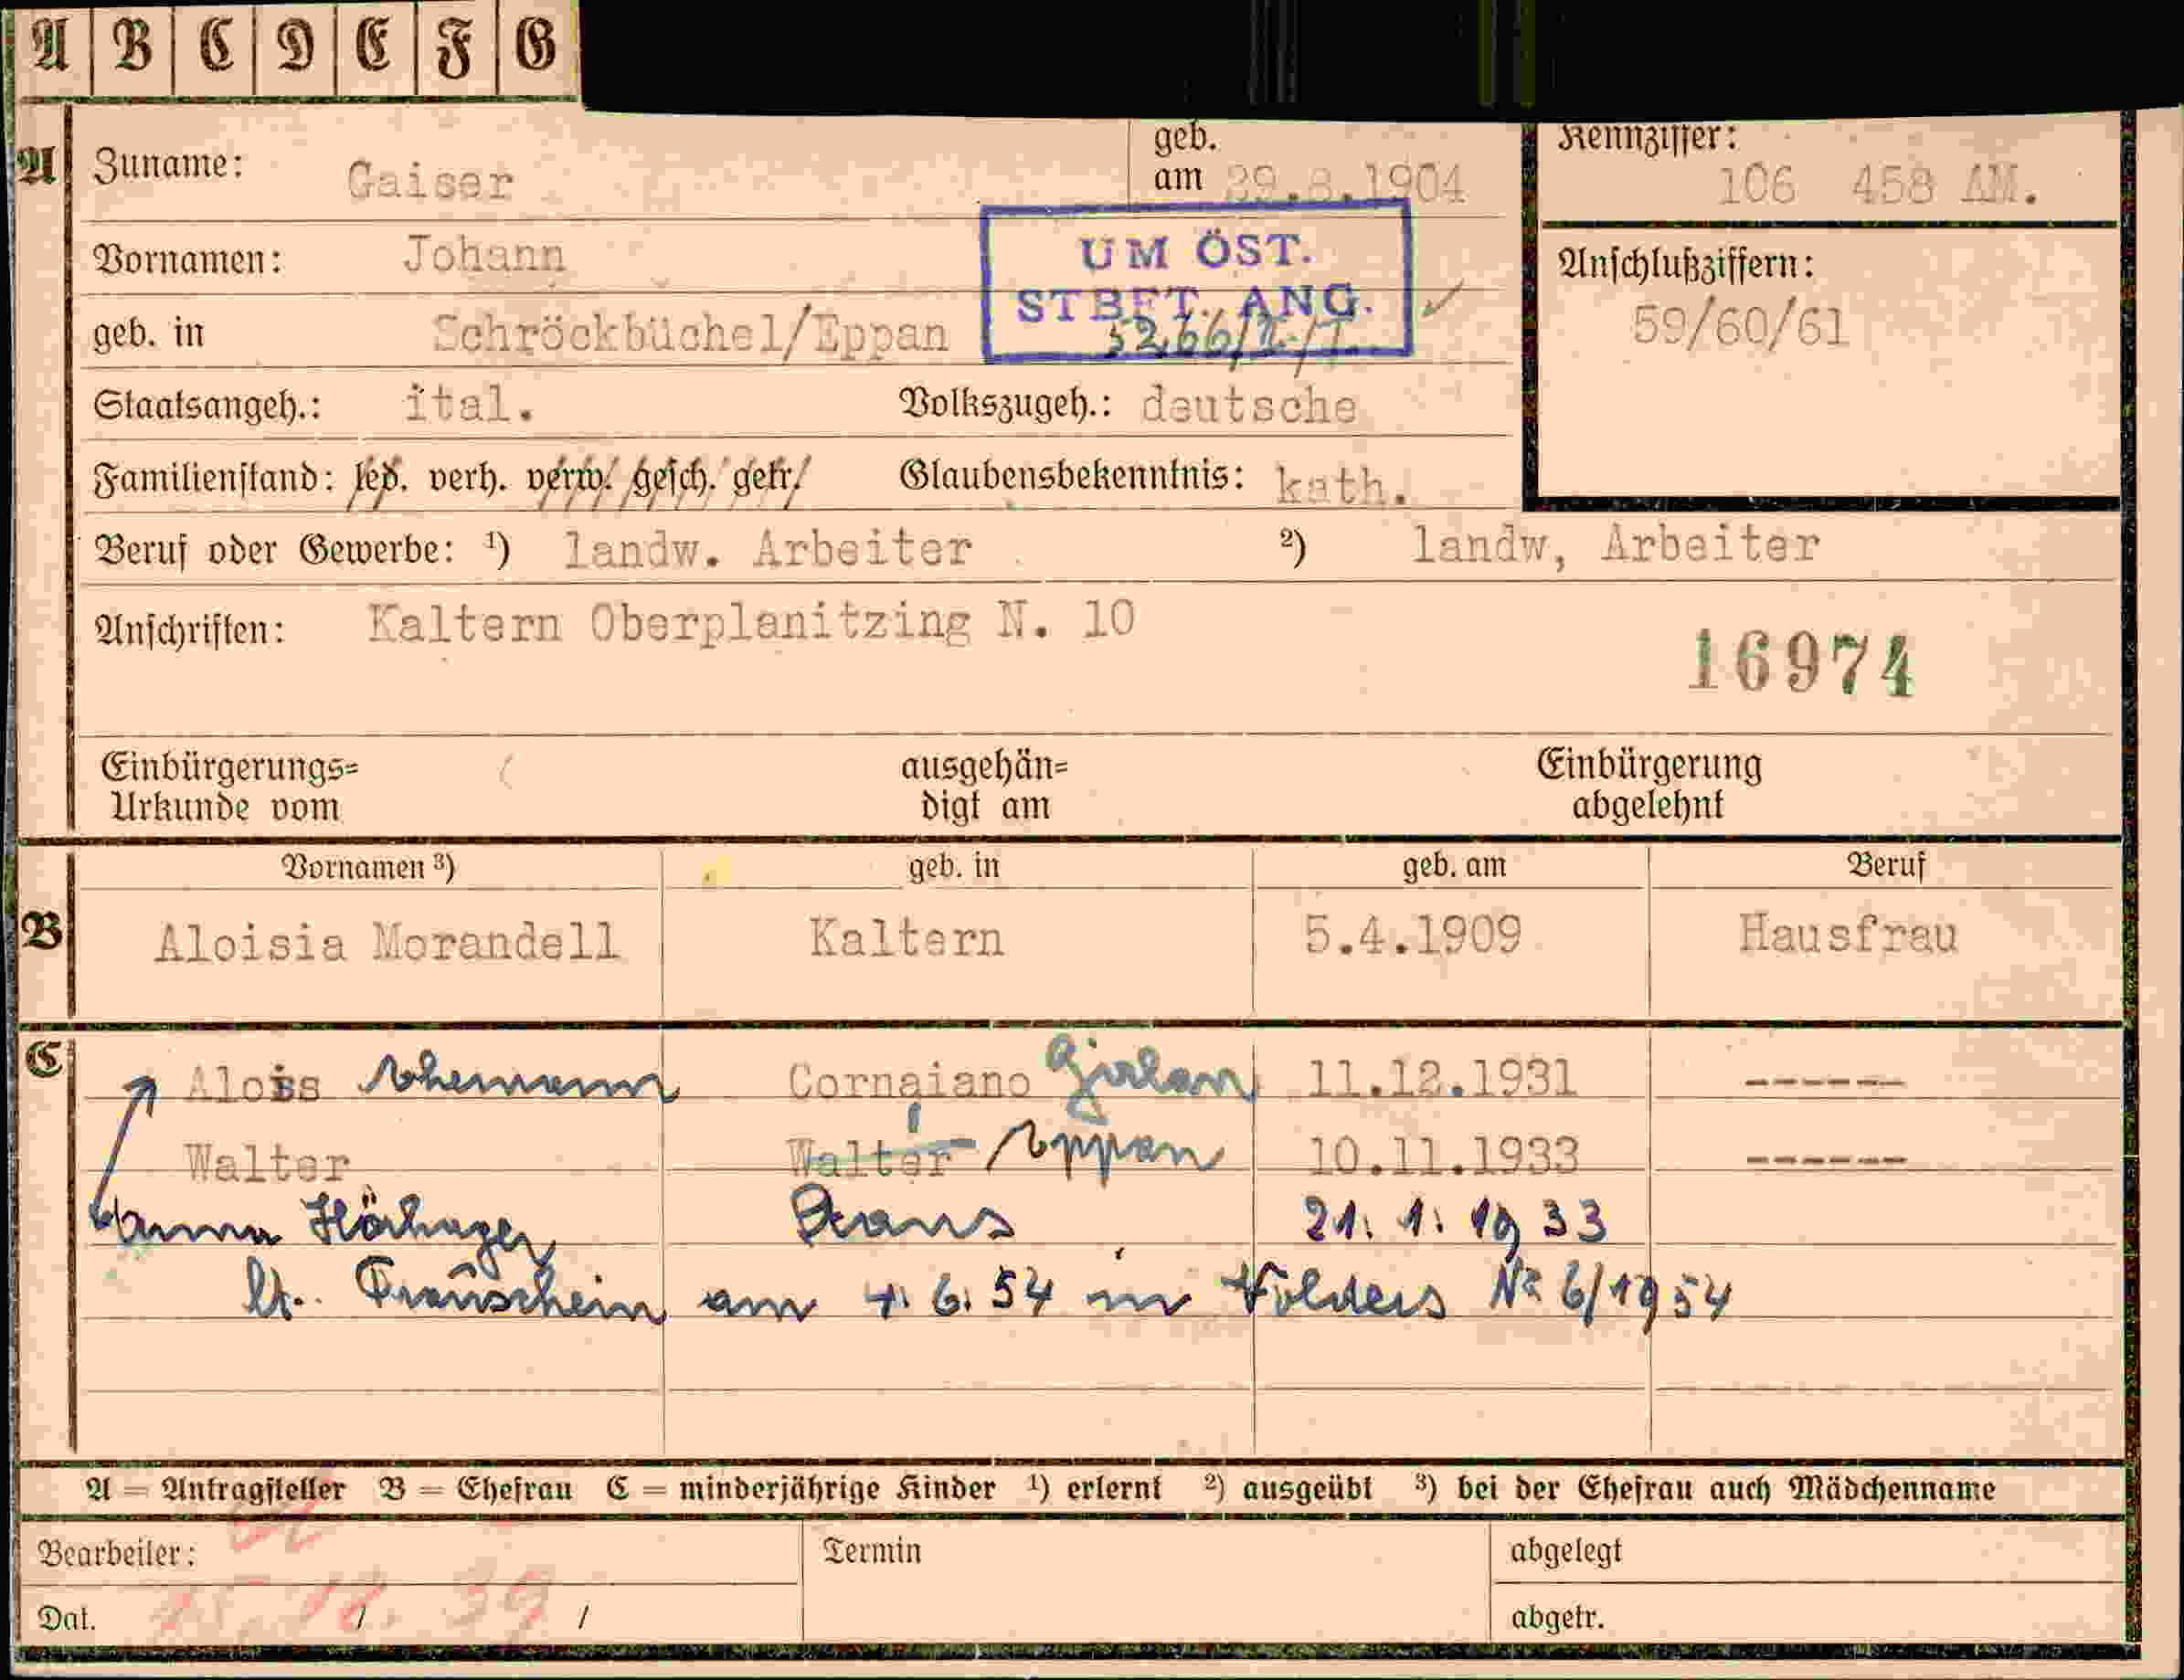 A B C D E F G
A Zuname: Gaiser geb. am 29.8.1904
Kennziffer: 106 458 AM.
Vornamen: Johann
UM ÖST. STBFT. ANG.
Anschlußziffern: 59/60/61
geb. in Schröckbüchel/Eppan
Staatsangeh.: ital. Volkszugeh.: deutsche
Familienstand: led. verh. verw. gesch. getr. Glaubensbekenntnis: kath.
Beruf oder Gewerbe: ¹) landw. Arbeiter ²) landw, Arbeiter
Anschriften: Kaltern Oberplanitzing N. 10
16974
Einbürgerungs= ausgehän= Einbürgerung
Urkunde vom digt am abgelehnt
Vornamen ³) geb. in geb. am Beruf
B Aloisia Morandell Kaltern 5.4.1909 Hausfrau
C Alois Ehemann Cornaiano Girlan 11.12.1931 ------
Walter Walter Eppan 10.11.1933 ------
Anna 21. 1. 1933
lt. Trauschein am 7. 6. 54 in Volders No 6/1954
A = Antragsteller B = Ehefrau C = minderjährige Kinder ¹) erlernt ²) ausgeübt ³) bei der Ehefrau auch Mädchenname
Bearbeiter: Termin abgelegt
Dat. 12. 39 abgetr.